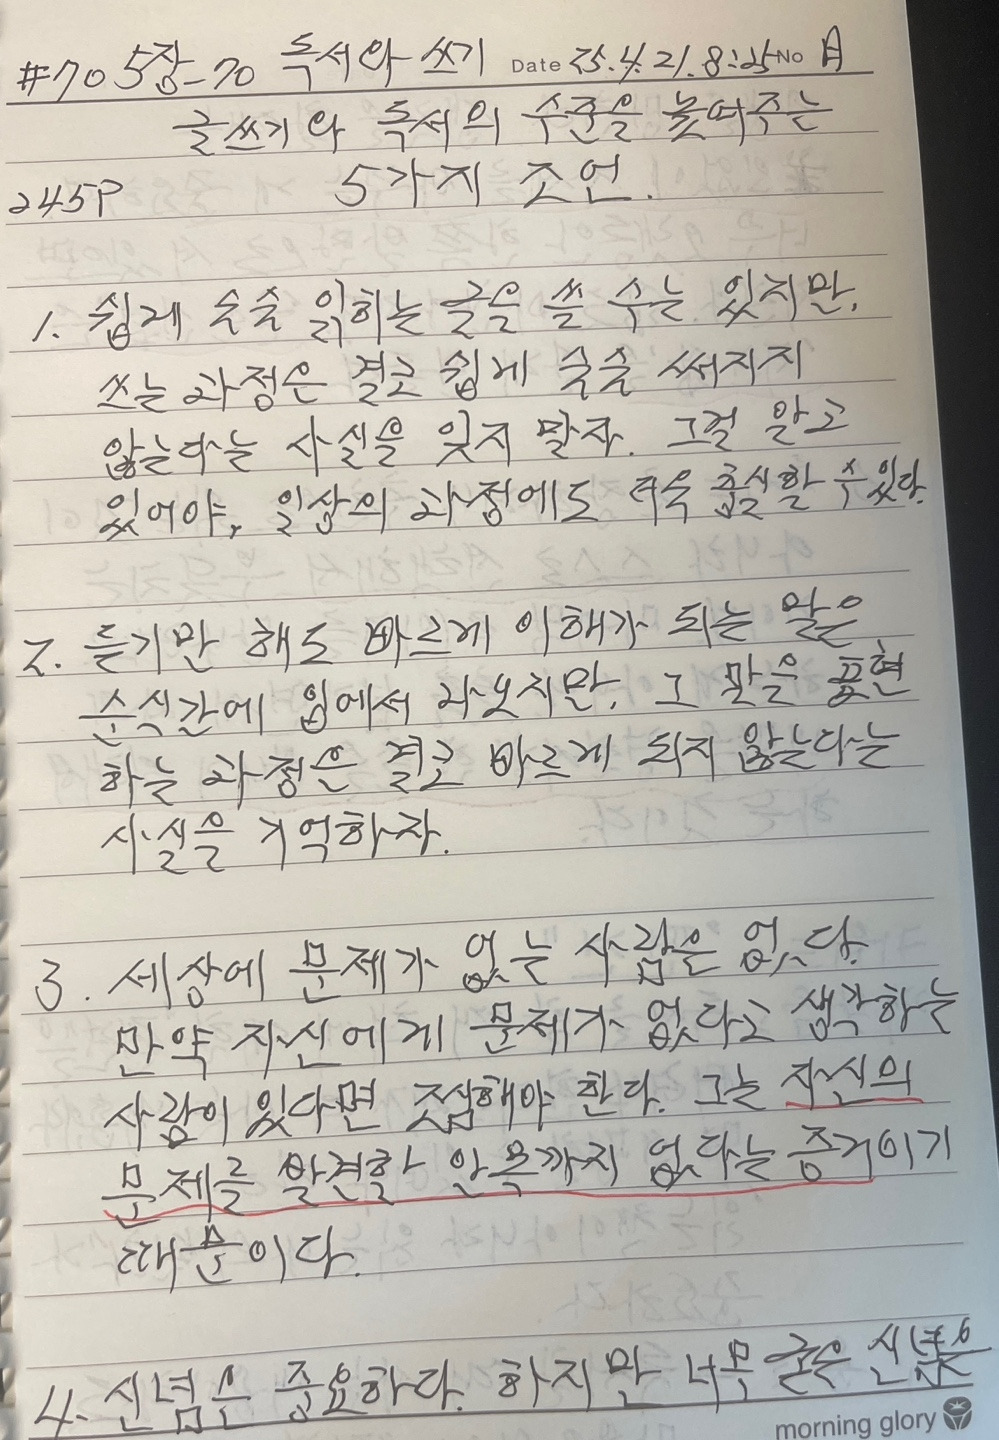 #70 5장-70 독서와 쓰기 Date 25.4.21.8:25 No 月
글쓰기와 독서의 수준을 높여주는
245P 5가지 조언.
1. 쉽게 술술 읽히는 글은 쓸 수는 있지만,
쓰는 과정은 결코 쉽게 술술 써지지
않는다는 사실을 잊지 말자. 그걸 알고
있어야, 일상의 과정에도 더욱 충실할 수 있다.
2. 듣기만 해도 바르게 이해가 되는 말은
순식간에 입에서 나오지만, 그 말을 표현
하는 과정은 결코 빠르게 되지 않는다는
사실을 기억하자.
3. 세상에 문제가 없는 사람은 없다.
만약 자신에게 문제가 없다고 생각하는
사람이 있다면 점검해야 한다. 그는 자신의
문제를 발견할 안목까지 없다는 증거이기
때문이다.
4. 신념은 중요하다. 하지만 너무 굳은
morning glory